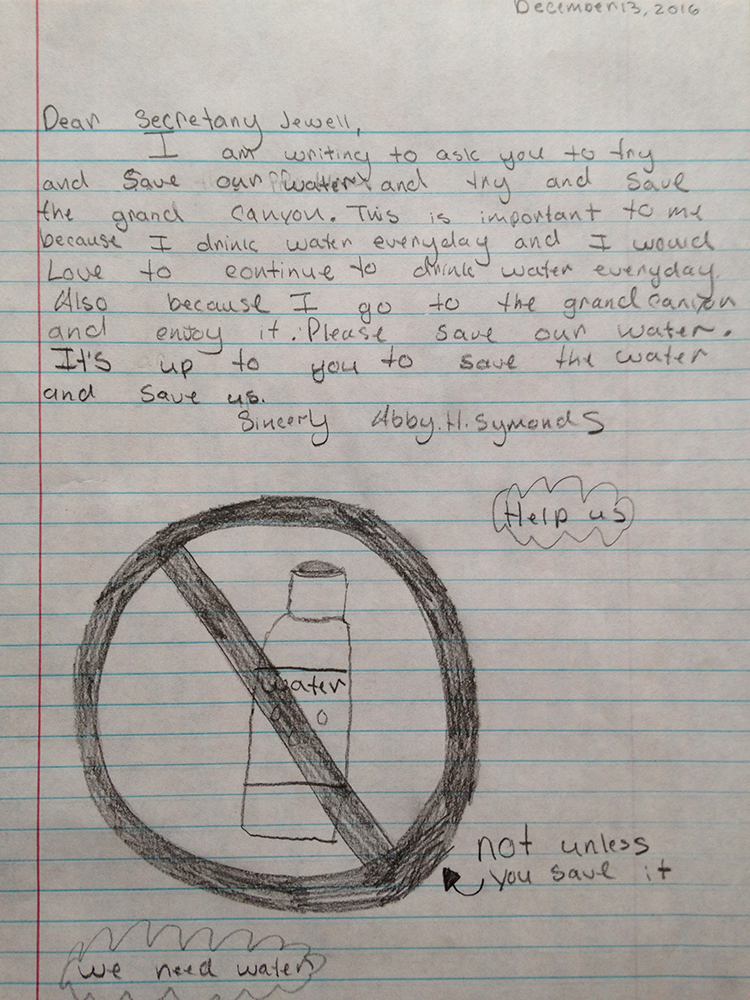 December 13, 2016
Dear Secretany Jewell,
I am writing to ask you to try
and save our water and try and save
the grand canyon. This is important to me
because I drink water everyday and I would
Love to continue to drink water everyday.
Also because I go to the grand canyon
and enjoy it. Please save our water.
It's up to you to save the water
and save us.
Sincerly Abby.H.Symonds
Help us
water
not unless
you save it
we need water